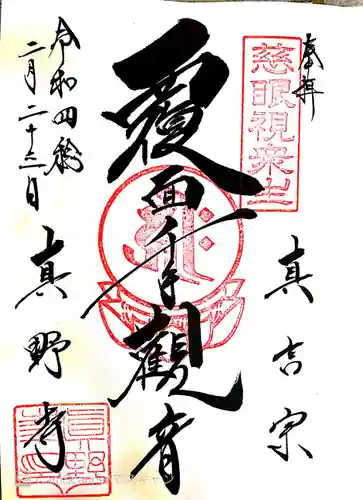 奉拝
慈眼視衆生
真言宗
覆面千手観音
令和四年
二月二十三日
真野寺